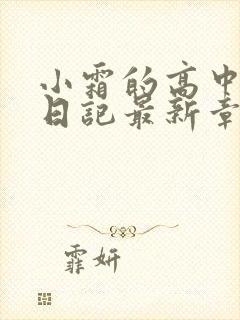 小霜的高中
日記最新章
霏妍